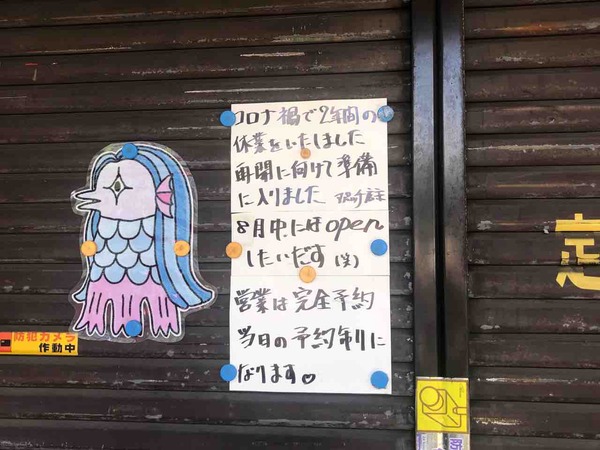 コロナ禍で2年間の
休業をいたしました
再開に向けて準備
に入りました 店主
8月中にはopen
したいだす(笑)
営業は完全予約
当日の予約有りに
なります♡
防犯カメラ
作動中
忘